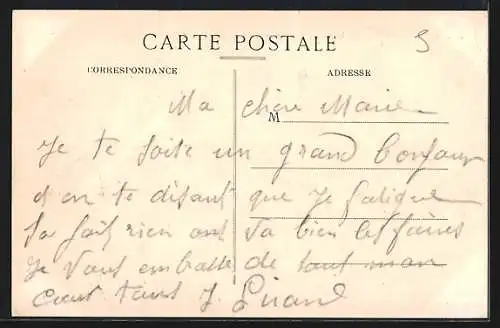 5
CARTE POSTALE
CORRESPONDANCE
ADRESSE
M
Ma chère Marie
Je te foite un grand bonjour
et en te disant que je
sa fait rien on va bien les
Je vous embrasse de tout mon
cœur tous J.